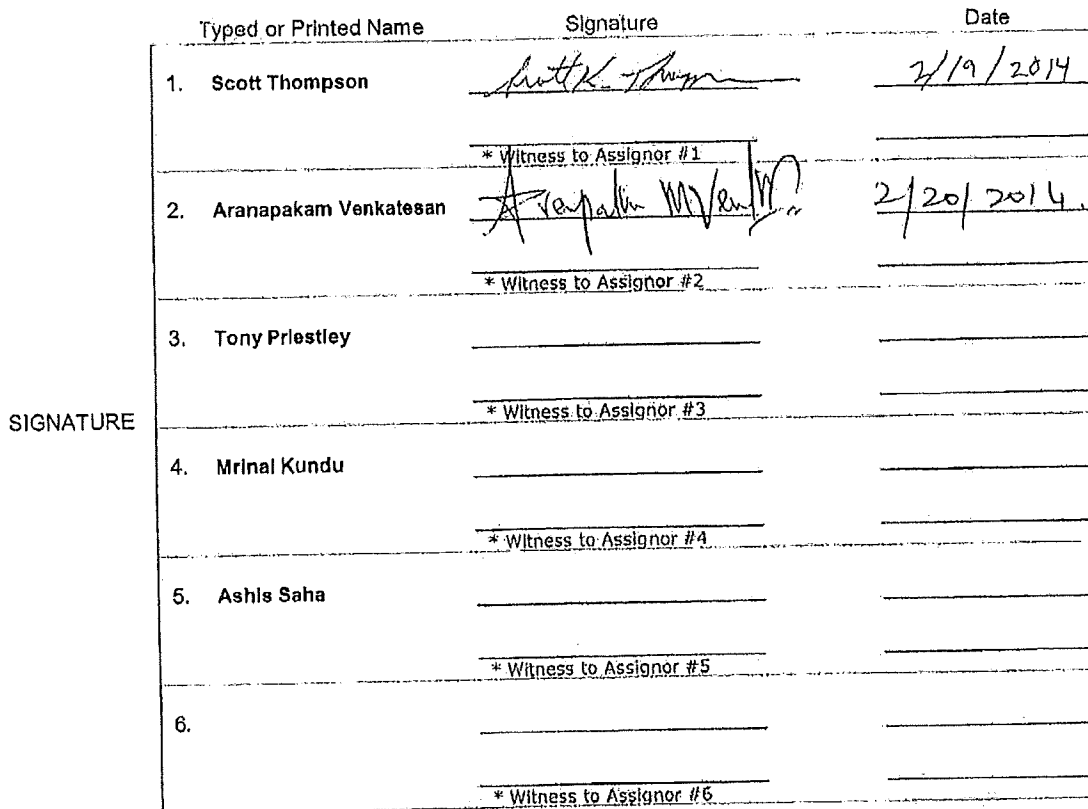 Typed or Printed Name Signature Date
1. Scott Thompson Scott K. Thompson 2/19/2014
* Witness to Assignor #1
2. Aranapakam Venkatesan 2/20/2014.
* Witness to Assignor #2
3. Tony Priestley
* Witness to Assignor #3
SIGNATURE
4. Mrinal Kundu
* Witness to Assignor #4
5. Ashis Saha
* Witness to Assignor #5
6.
* Witness to Assignor #6